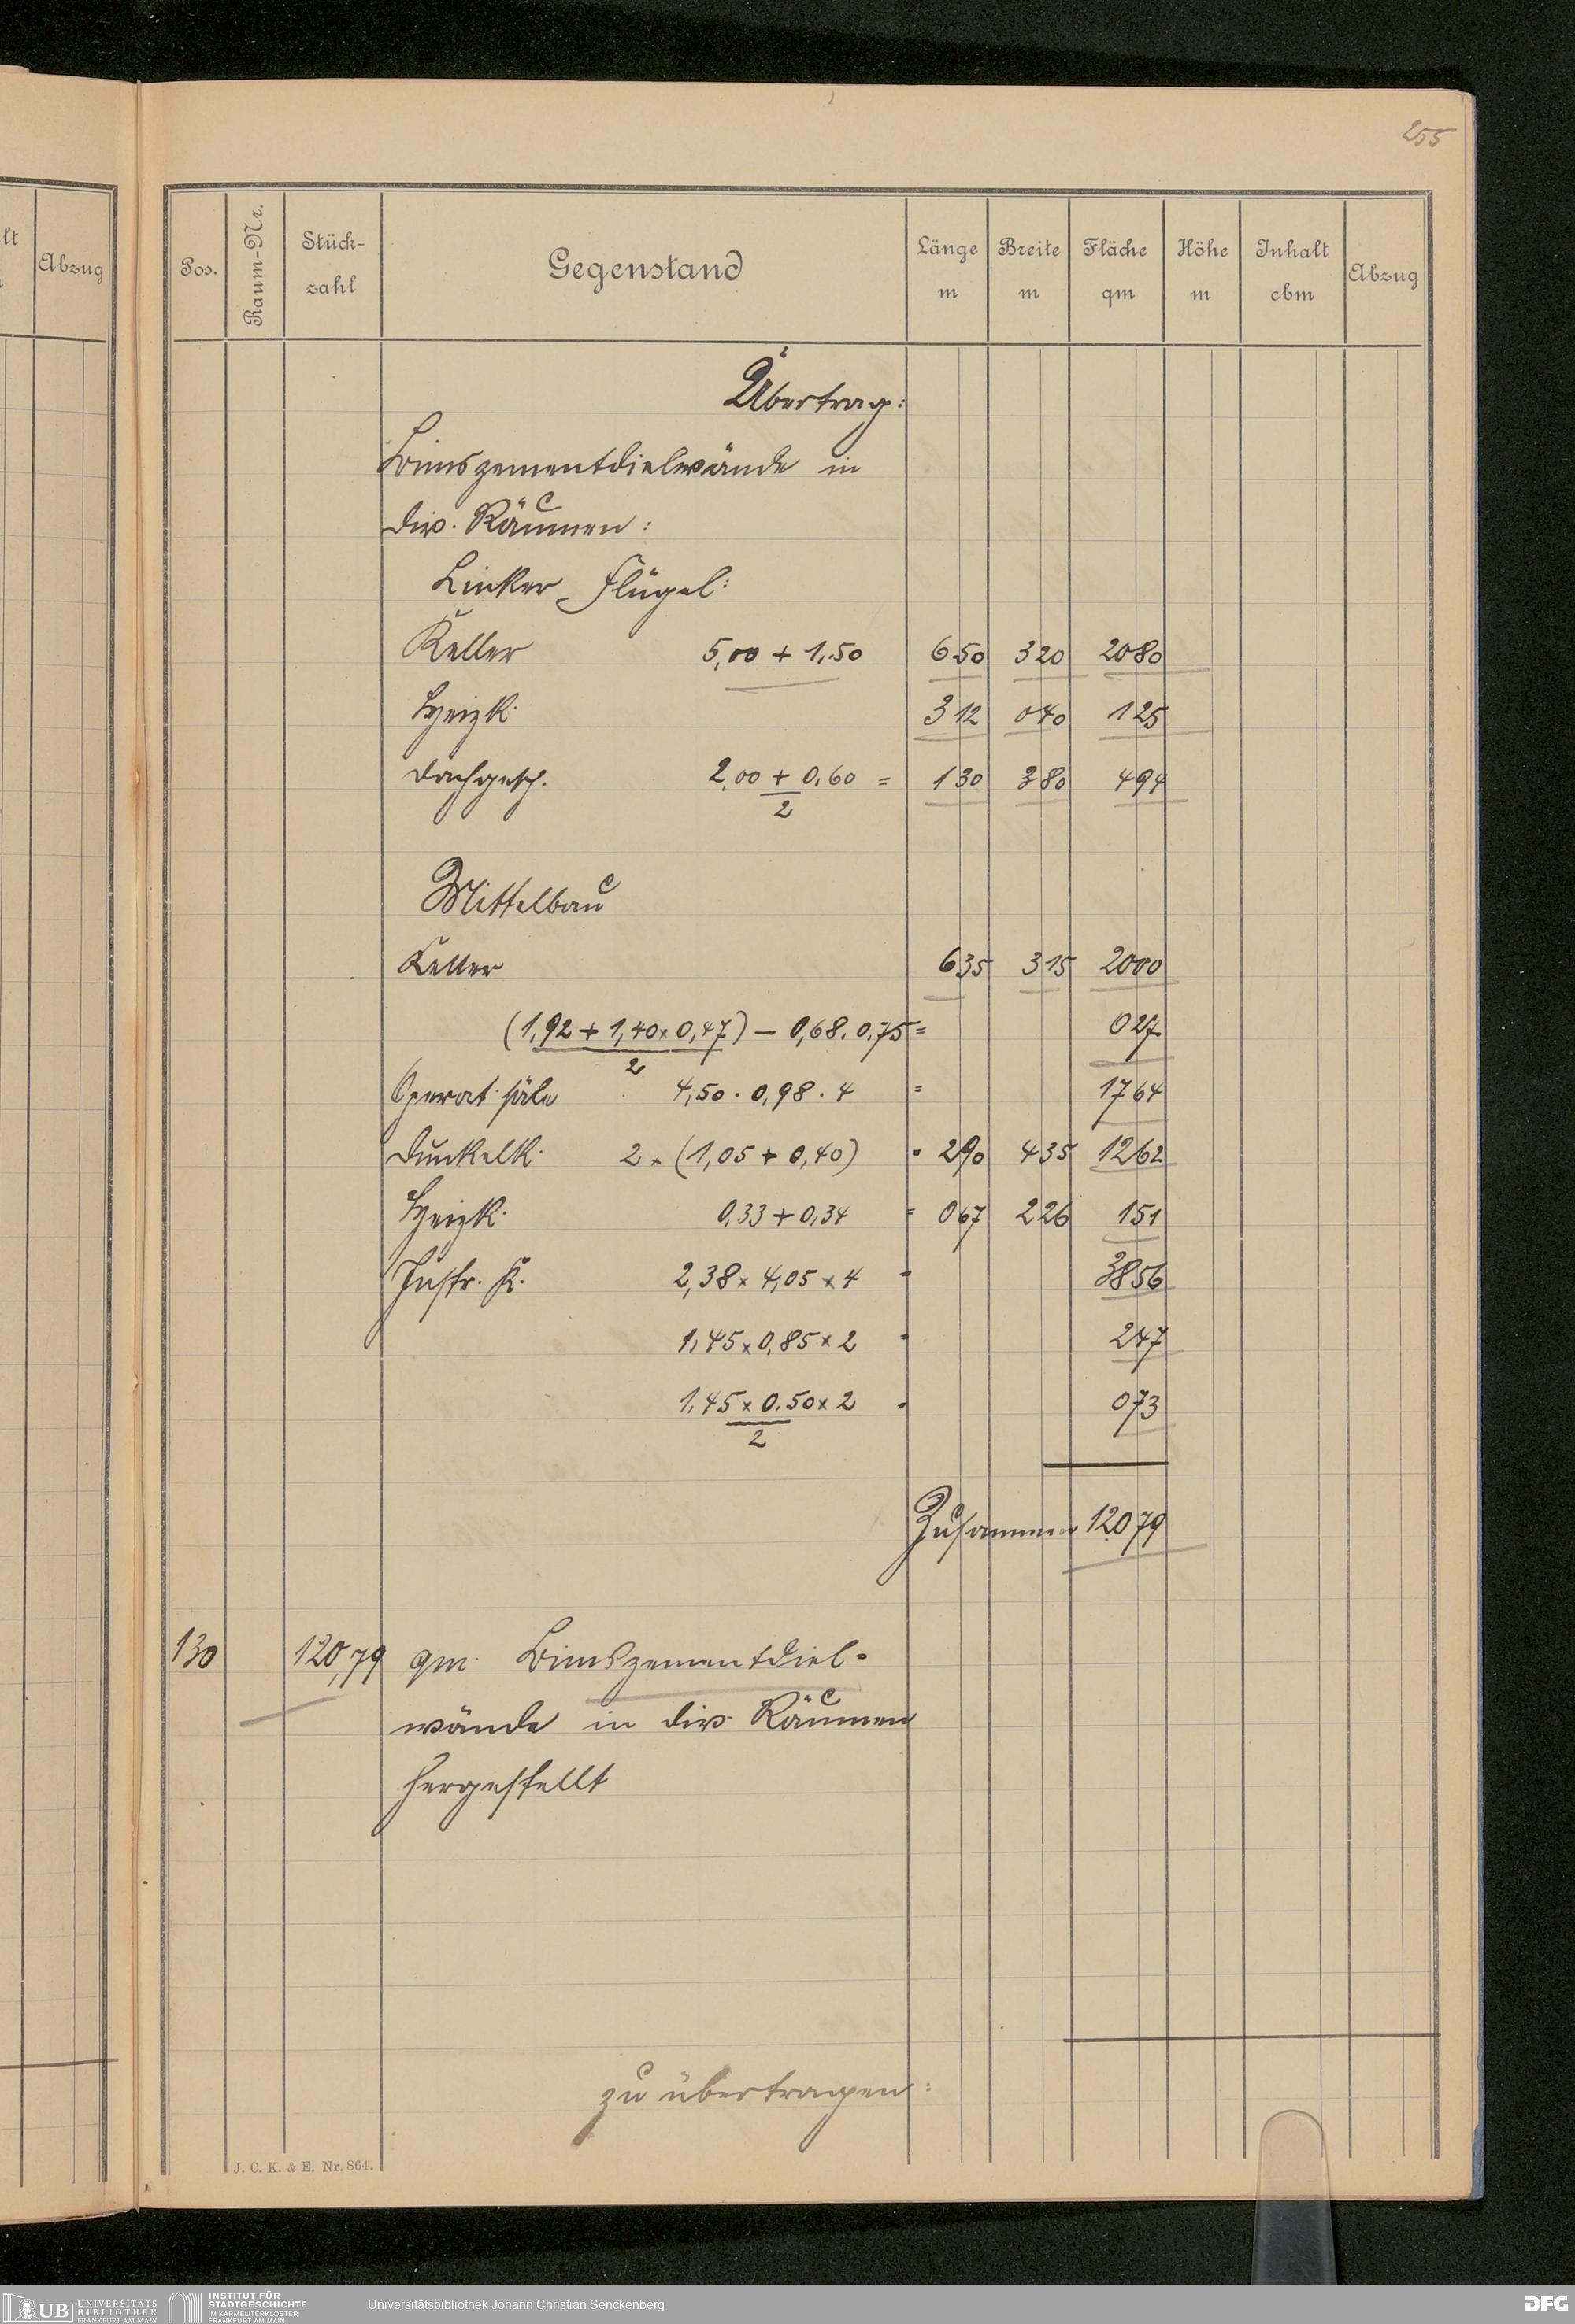 255
lt
Abzug
Pos. Raum-Nr. Stück-zahl Gegenstand Länge m Breite m Fläche qm Höhe m Inhalt cbm Abzug
Übertrag:
Bimszementdielwände in
div. Räumen:
Linker Flügel:
Keller 5,00 + 1,50 6 50 3 20 20 80
Heizk. 3 12 0 40 1 25
Dachgesch. 2,00 + 0,60 = 1 30 3 80 4 94
2
Mittelbau
Keller 6 35 3 15 20 00
(1,92 + 1,40 x 0,47) – 0,68 . 0,75 = 0 27
2
Operat. säle 4,50 . 0,98 . 4 = 17 64
Dunkelk. 2 x (1,05 + 0,40) = 2 90 4 35 12 62
Heizk. 0,33 + 0,34 = 0 67 2 26 1 51
Instr. K. 2,38 x 4,05 x 4 = 38 56
1,45 x 0,85 x 2 = 2 47
1,45 x 0,50 x 2 = 0 73
2
Zusammen 120 79
130 120,79 qm Bimszementdiel-
wände in div. Räumen
hergestellt
zu übertragen:
J. C. K. & E. Nr. 864.
UB UNIVERSITÄTS BIBLIOTHEK FRANKFURT AM MAIN
INSTITUT FÜR STADTGESCHICHTE IM KARMELITERKLOSTER FRANKFURT AM MAIN
Universitätsbibliothek Johann Christian Senckenberg
DFG